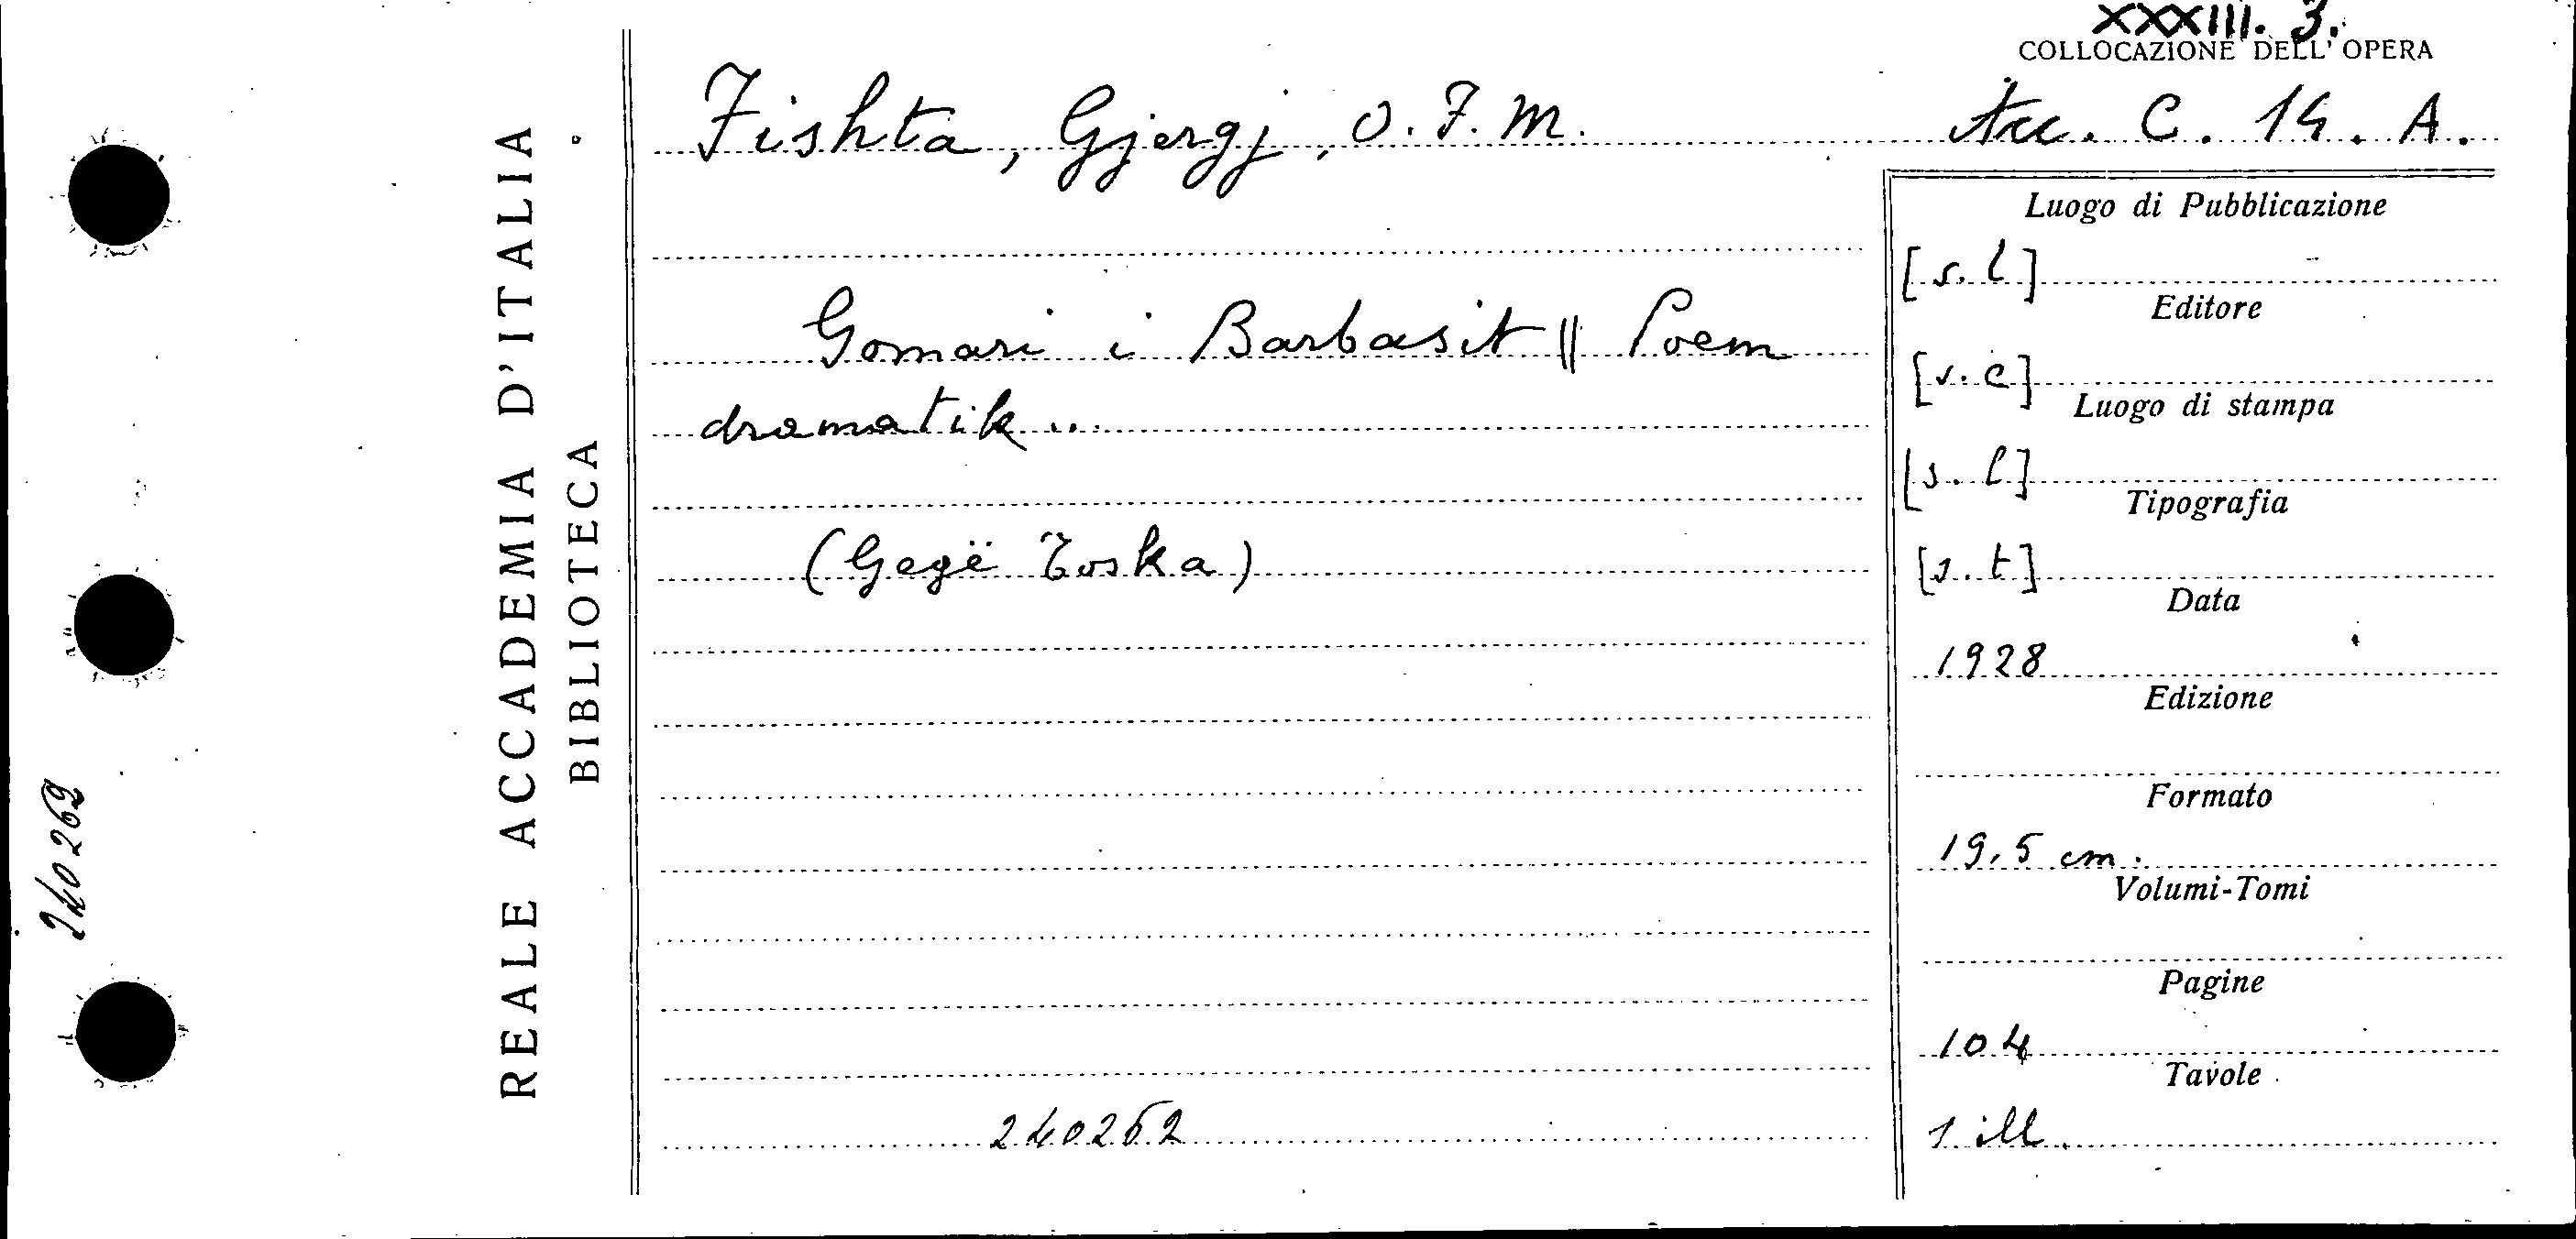 XXXIII. 3.
COLLOCAZIONE DELL' OPERA
Fishta, Gjergj, O.F.M.
Acc. C. 14. A.
REALE ACCADEMIA D'ITALIA
BIBLIOTECA
Gomari i Barbasit || Poem
dramatik...
(Gegë Toska)
240262
Luogo di Pubblicazione
[s. l]
Editore
[s. e]
Luogo di stampa
[s. l]
Tipografia
[s. t]
Data
1928
Edizione
Formato
19,5 cm.
Volumi-Tomi
Pagine
104
Tavole
1 ill.
240262